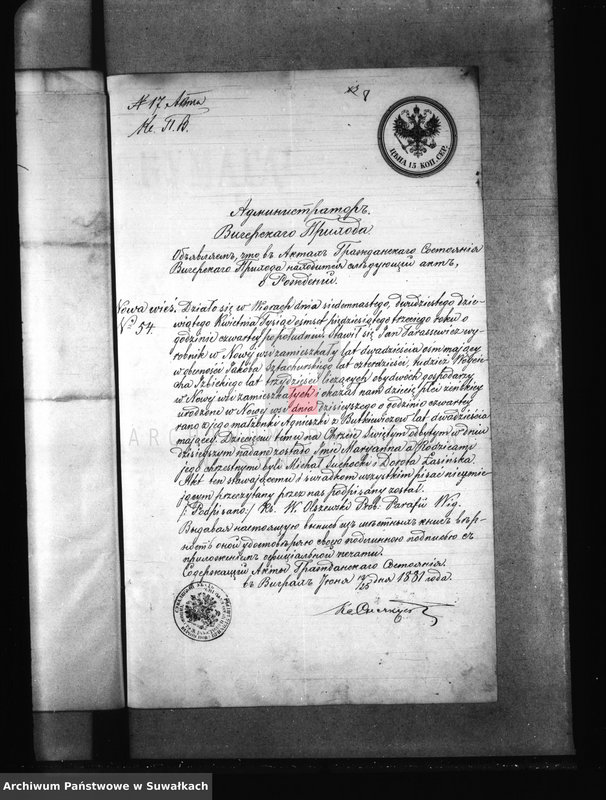 № 17 Акта
Кс. П. В.
8
ЦѢНА 15 КОП. СЕР.
Администраторъ
Вигерскаго Прихода
Объявляетъ, что въ Актахъ Гражданскаго Состоянія
Вигерскаго Прихода находится слѣдующій актъ,
о Рожденіи.
Nowa wieś. Działo się w Wigrach dnia siedemnastego, dwudziestego dzie-
№ 54. wiątego Kwietnia Tysiąc ośmset pięćdziesiątego trzeciego roku o
godzinie czwartej popołudniu Stawił się Jan Tarasewicz wy-
robnik w Nowej wsi zamieszkały lat dwadzieścia ośm mający
w obecności Jakóba Sztachurskiego lat czterdzieści, tudzież Wojcie-
cha Szlickiego lat trzydzieści liczących obydwóch gospodarzy
w Nowej wsi zamieszkałych i okazał nam dziecię płci żeńskiej
urodzone w Nowej wsi dnia dzisiejszego o godzinie czwartej
rano z jego małżonki Agnieszki z Butkiewiczów lat dwadzieścia
mającej. Dziecięciu temu na Chrzcie Świętym odbytym w dniu
dzisiejszym nadane zostało Imie Maryanna a Rodzicami
jego chrzestnymi byli Michał Suchocki i Dorota Łasińska.
Akt ten stawającemu i świadkom wszystkim pisać nieumie-
jącym przeczytany przez nas podpisany został.
/: Podpisano :/ Ks. W. Olszewski Prob. Parafii Wig.
Выдавая настоящую выпись изъ мѣстныхъ книгъ вѣр-
ность оной удостовѣряю своею подлинною подписью съ
приложеніемъ оффиціальной печати.
Содержащій Акты Гражданскаго Состоянія.
въ Виграхъ Іюня 13/25 дня 1881 года.
Archiwum Państwowe w Suwałkach